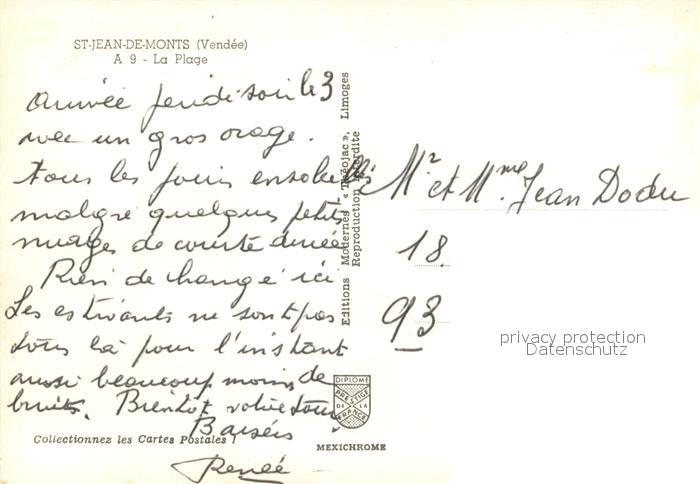 ST-JEAN-DE-MONTS (Vendée)
A 9 - La Plage
Arrivée Jeudi soir le 3
avec un gros orage.
tous les jours ensoleillés
malgré quelques petits
nuages de courte durée
Rien de changé ici
Les estivants ne sont pas
tous là pour l'instant
aussi beaucoup moins de
bruits. Bientôt votre tour
Baisers
Renée
Collectionnez les Cartes Postales !
Editions Modernes « Théojac », Limoges
Reproduction Interdite
Mr et Mme Jean Dodu
18
93
privacy protection
Datenschutz
DIPLOME
PRESTIGE
DE LA
FRANCE
MEXICHROME